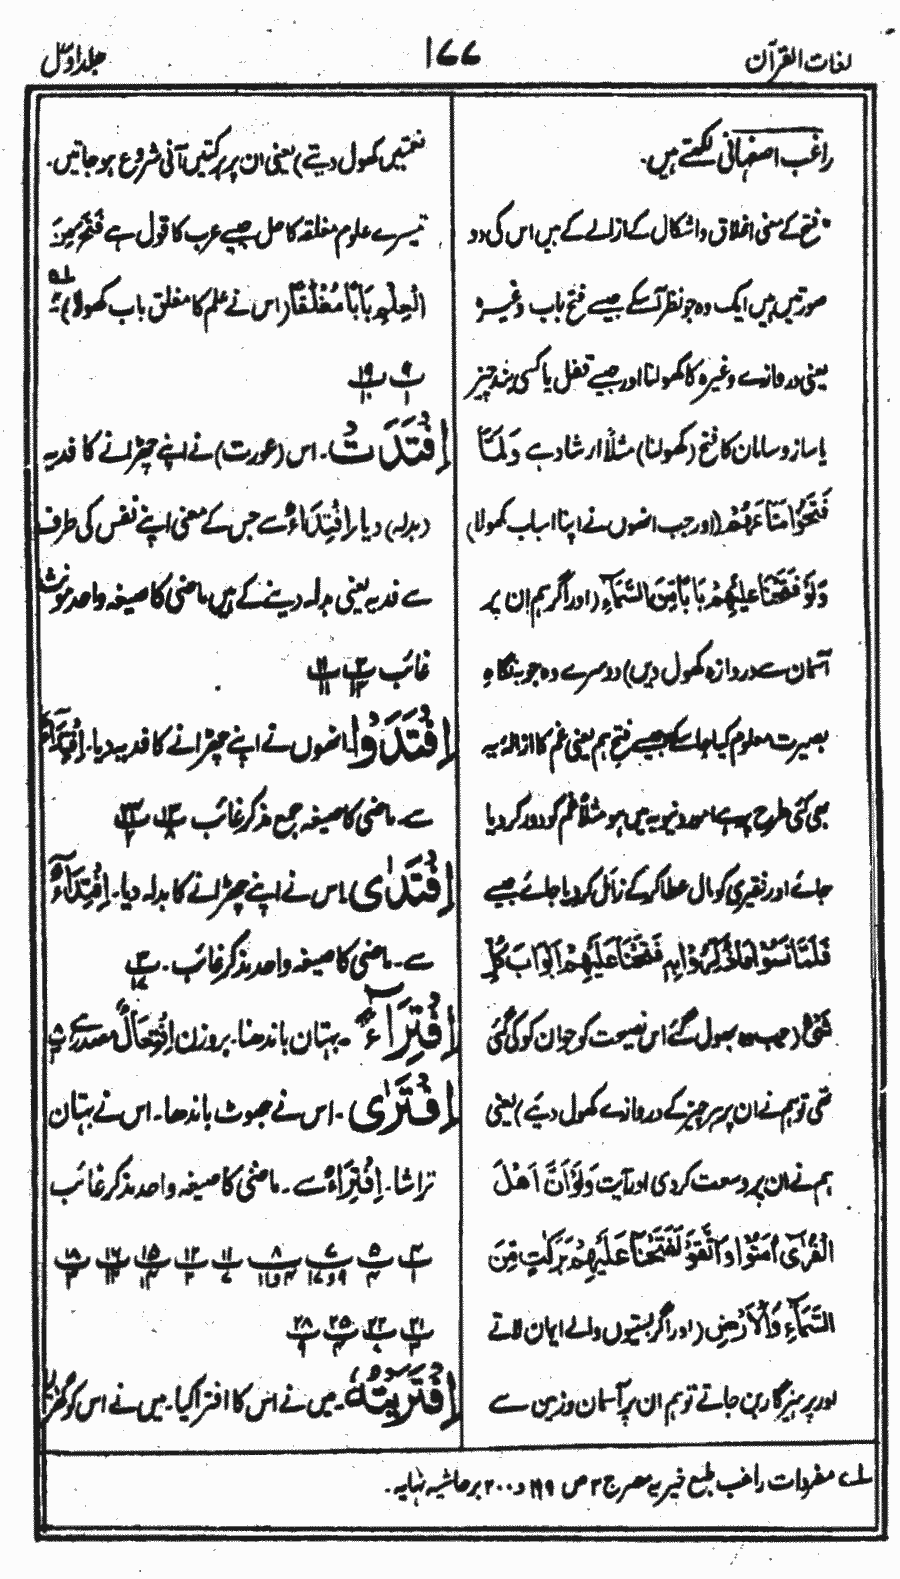 لغات القرآن
۱۷۷
جلد اوّل
راغب اصفہانی لکھتے ہیں۔
"فتح کے معنی اغلاق و اشکال کے ازالے کے ہیں اس کی دو
صورتیں ہیں ایک وہ جو نظر آسکے جیسے فتح باب وغیرہ
یعنی دروازے وغیرہ کا کھولنا اور جیسے قفل یا کسی بند چیز
یا ساز و سامان کا فتح (کھولنا) مثلًا ارشاد ہے وَلَمَّا
فَتَحُوْا مَتَاعَهُمْ (اور جب انھوں نے اپنا اسباب کھولا)
وَلَوْ فَتَحْنَا عَلَيْهِمْ بَابًا مِّنَ السَّمَآءِ (اور اگر ہم ان پر
آسمان سے دروازہ کھول دیں) دوسرے وہ جو بنگاہِ
بصیرت معلوم کیا جا سکے جیسے فتحِ ہم یعنی غم کا ازالہ، یہ
بھی کئی طرح پر ہے امور دنیویہ میں ہو مثلًا غم کو دور کر دیا
جائے اور فقیری کو مال عطا کر کے زائل کر دیا جائے جیسے
فَلَمَّا نَسُوْا مَا ذُكِّرُوْا بِهٖ فَتَحْنَا عَلَيْهِمْ اَبْوَابَ كُلِّ
شَيْءٍ (جب وہ بھول گئے اس نصیحت کو جو ان کو کی گئی
تھی تو ہم نے ان پر ہر چیز کے دروازے کھول دیئے) یعنی
ہم نے ان پر وسعت کر دی اور آیت وَلَوْ اَنَّ اَهْلَ
الْقُرٰٓى اٰمَنُوْا وَاتَّقَوْا لَفَتَحْنَا عَلَيْهِمْ بَرَكٰتٍ مِّنَ
السَّمَآءِ وَالْاَرْضِ (اور اگر بستیوں والے ایمان لاتے
اور پرہیزگار بن جاتے تو ہم ان پر آسمان و زمین سے
نعمتیں کھول دیتے) یعنی ان پر برکتیں آنی شروع ہو جاتیں۔
تیسرے علوم مغلقہ کا حل جیسے عرب کا قول ہے فُتِحَ مِنَ
الْعِلْمِ بَابًا مُغْلَقًا (اس نے علم کا مغلق باب کھولا)
۹ ۱۹
۱ ۱۰
اِفْتَدَتْ۔ اس (عورت) نے اپنے چھڑانے کا فدیہ
(بدلہ) دیا، اِفْتِدَاءٌ سے جس کے معنی اپنے نفس کی طرف
سے فدیہ یعنی بدلہ دینے کے ہیں ماضی کا صیغہ واحد مؤنث
غائب
اِفْتَدَوْا انھوں نے اپنے چھڑانے کا فدیہ دیا۔ اِفْتِدَاءٌ
سے ماضی کا صیغہ جمع مذکر غائب
اِفْتَدٰى اس نے اپنے چھڑانے کا بدلہ دیا۔ اِفْتِدَآءٌ
سے۔ ماضی کا صیغہ واحد مذکر غائب۔
اِفْتِرَآءً۔ بہتان باندھنا۔ بروزن اِفْتِعَالٌ مصدر ہے
اِفْتَرٰى۔ اس نے جھوٹ باندھا۔ اس نے بہتان
تراشا۔ اِفْتِرَاءٌ سے۔ ماضی کا صیغہ واحد مذکر غائب
اِفْتَرَيْتُهٗ۔ میں نے اس کا افترا کیا۔ میں نے اس کو گھڑ لیا
لے مفردات راغب طبع خیریہ مصر ج ۳ ص ۱۹۹ و ۲۰۰ بر حاشیہ نہایہ۔